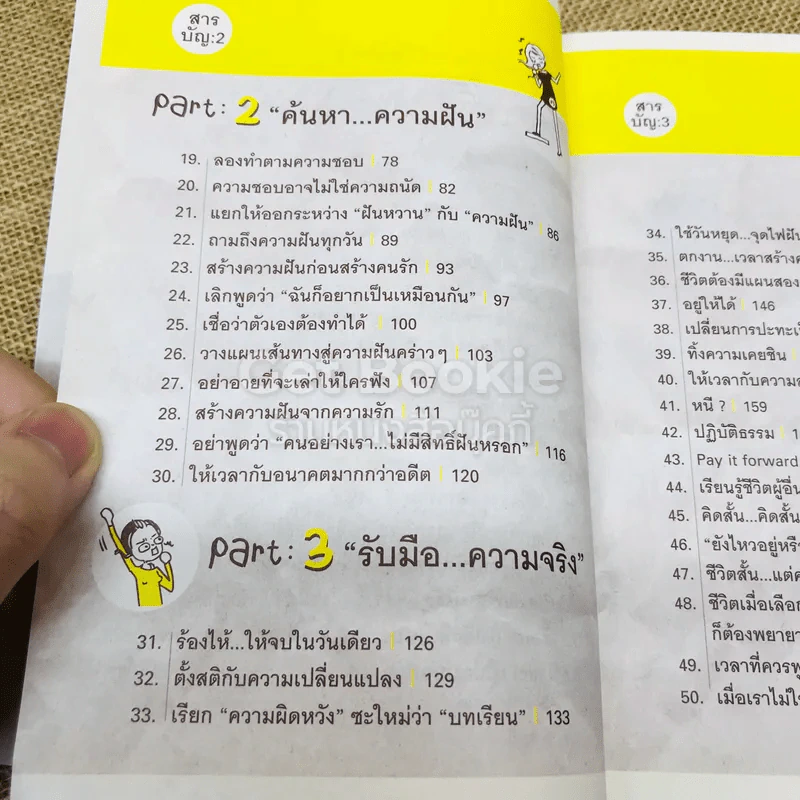 สาร
บัญ:2
Part: 2 “ค้นหา...ความฝัน”
19. ลองทำตามความชอบ | 78
20. ความชอบอาจไม่ใช่ความถนัด | 82
21. แยกให้ออกระหว่าง “ฝันหวาน” กับ “ความฝัน” | 86
22. ถามถึงความฝันทุกวัน | 89
23. สร้างความฝันก่อนสร้างคนรัก | 93
24. เลิกพูดว่า “ฉันก็อยากเป็นเหมือนกัน” | 97
25. เชื่อว่าตัวเองต้องทำได้ | 100
26. วางแผนเส้นทางสู่ความฝันคร่าวๆ | 103
27. อย่าอายที่จะเล่าให้ใครฟัง | 107
28. สร้างความฝันจากความรัก | 111
29. อย่าพูดว่า “คนอย่างเรา...ไม่มีสิทธิ์ฝันหรอก” | 116
30. ให้เวลากับอนาคตมากกว่าอดีต | 120
Part: 3 “รับมือ...ความจริง”
31. ร้องไห้...ให้จบในวันเดียว | 126
32. ตั้งสติกับความเปลี่ยนแปลง | 129
33. เรียก “ความผิดหวัง” ซะใหม่ว่า “บทเรียน” | 133
สาร
บัญ:3
34. ใช้วันหยุด...จุดไฟฝัน
35. ตกงาน...เวลาสร้าง
36. ชีวิตต้องมีแผนสอง
37. อยู่ให้ได้ | 146
38. เปลี่ยนการปะทะ
39. ทิ้งความเคยชิน |
40. ให้เวลากับความ
41. หนี ? | 159
42. ปฏิบัติธรรม |
43. Pay it forward
44. เรียนรู้ชีวิตผู้อื่น
45. คิดสั้น...คิดสั้น
46. “ยังไหวอยู่หรือ
47. ชีวิตสั้น...แต่
48. ชีวิตเมื่อเลือก
ก็ต้องพยายา
49. เวลาที่ควร
50. เมื่อเราไม่
Get Bookie
ร้านหนังสือบุ๊คกี้